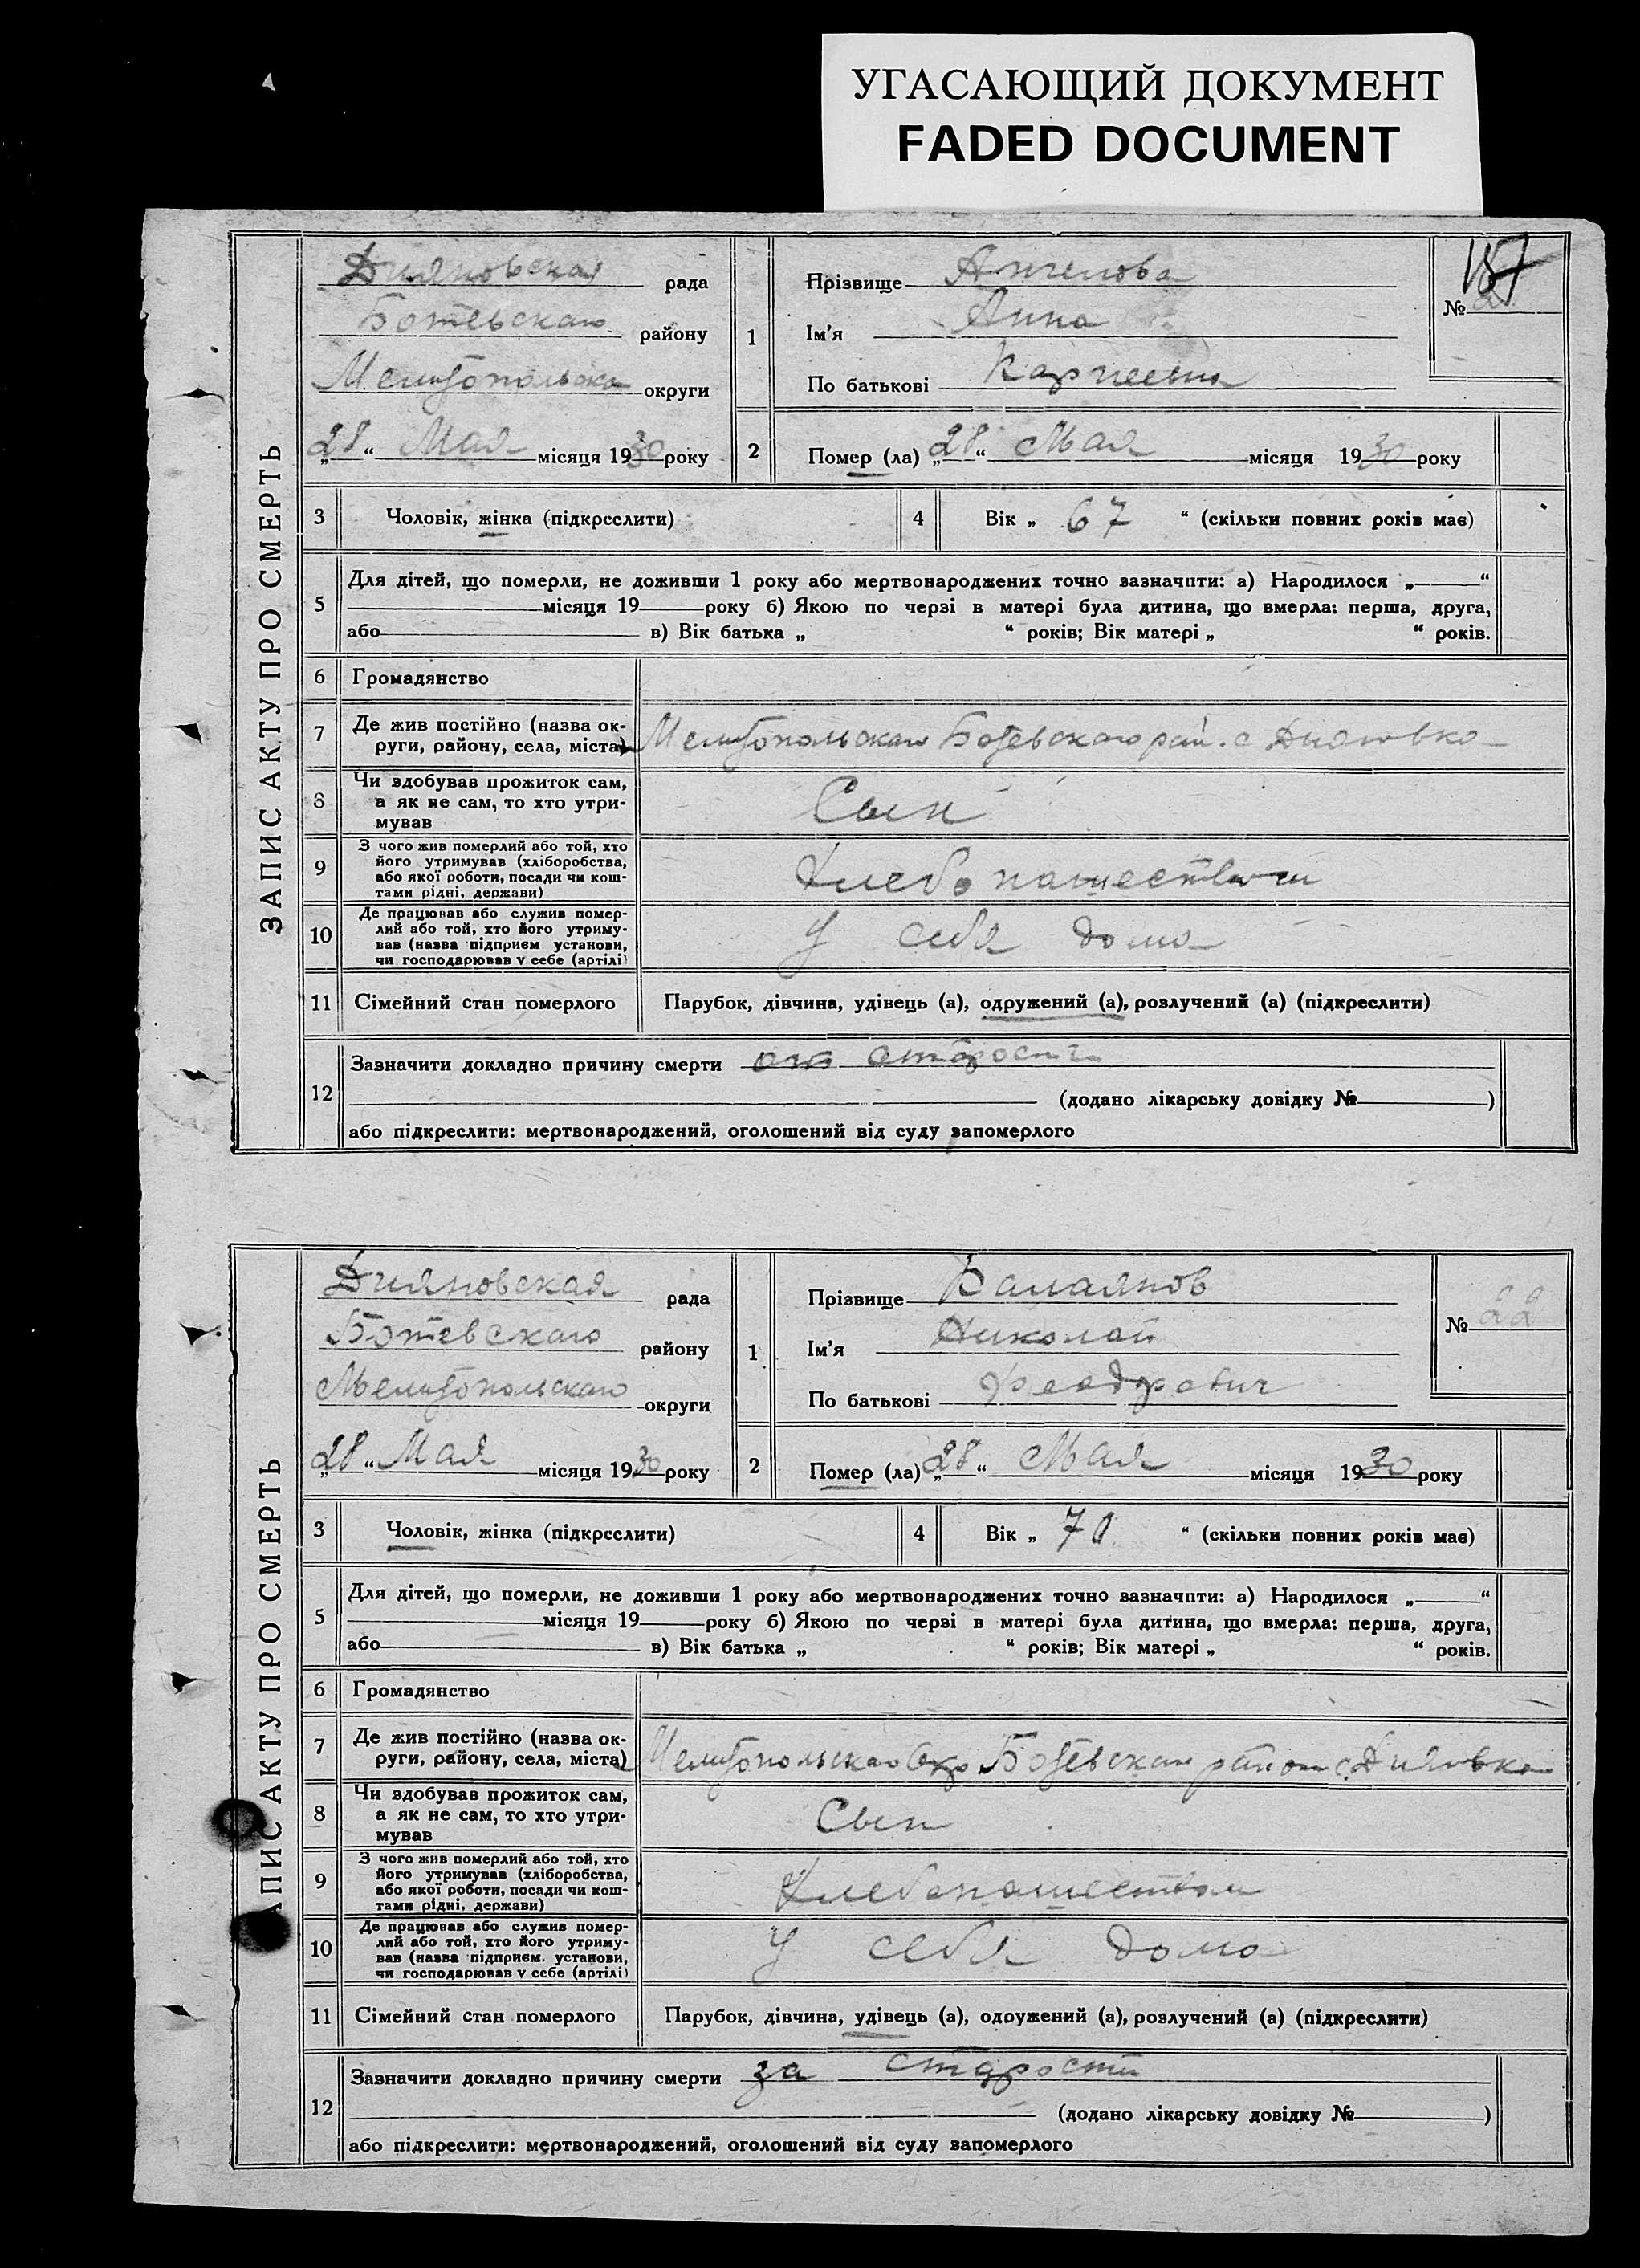 УГАСАЮЩИЙ ДОКУМЕНТ
FADED DOCUMENT
ЗАПИС АКТУ ПРО СМЕРТЬ
Дияновская рада
Ботевскаго району
Мелитопольска округи
„28“ Мая місяця 1930 року
1
Прізвище Ангелова
Ім'я Анна
По батькові Карпеевна
157
№
2 Помер (ла) „28“ Мая місяця 1930 року
3 Чоловік, жінка (підкреслити)
4 Вік „ 67 “ (скільки повних років має)
5 Для дітей, що померли, не доживши 1 року або мертвонароджених точно зазначити: а) Народилося „ “
місяця 19 року б) Якою по черзі в матері була дитина, що вмерла: перша, друга,
або в) Вік батька „ “ років; Вік матері „ “ років.
6 Громадянство
7 Де жив постійно (назва ок-
руги, району, села, міста) Мелитопольскаго Ботевскаго рай. с Дияновка
8 Чи здобував прожиток сам,
а як не сам, то хто утри-
мував
Сын
9 З чого жив померлий або той, хто
його утримував (хліборобства,
або якої роботи, посади чи кош-
тами рідні, держави)
Хлебопашеством
10 Де працював або служив помер-
лий або той, хто його утриму-
вав (назва підприєм установи,
чи господарював у себе (артілі)
У себя дома
11 Сімейний стан померлого Парубок, дівчина, удівець (а), одружений (а), розлучений (а) (підкреслити)
12 Зазначити докладно причину смерти от старости
(додано лікарську довідку № )
або підкреслити: мертвонароджений, оголошений від суду запомерлого
АПИС АКТУ ПРО СМЕРТЬ
Дияновская рада
Ботевскаго району
Мелитопольскаго округи
„28“ Мая місяця 1930 року
1
Прізвище Балаянов
Ім'я Николай
По батькові Феодрович
№ 22
2 Помер (ла) „28“ Мая місяця 1930 року
3 Чоловік, жінка (підкреслити)
4 Вік „ 70 “ (скільки повних років має)
5 Для дітей, що померли, не доживши 1 року або мертвонароджених точно зазначити: а) Народилося „ “
місяця 19 року б) Якою по черзі в матері була дитина, що вмерла: перша, друга,
або в) Вік батька „ “ років; Вік матері „ “ років.
6 Громадянство
7 Де жив постійно (назва ок-
руги, району, села, міста) Мелитопольскаго Окр Ботевскаго район с. Дияновка
8 Чи здобував прожиток сам,
а як не сам, то хто утри-
мував
Сын
9 З чого жив померлий або той, хто
його утримував (хліборобства,
або якої роботи, посади чи кош-
тами рідні, держави)
Хлебопашеством
10 Де працював або служив помер-
лий або той, хто його утриму-
вав (назва підприєм. установи,
чи господарював у себе (артілі)
У себя дома
11 Сімейний стан померлого Парубок, дівчина, удівець (а), одружений (а), розлучений (а) (підкреслити)
12 Зазначити докладно причину смерти за старости
(додано лікарську довідку № )
або підкреслити: мертвонароджений, оголошений від суду запомерлого